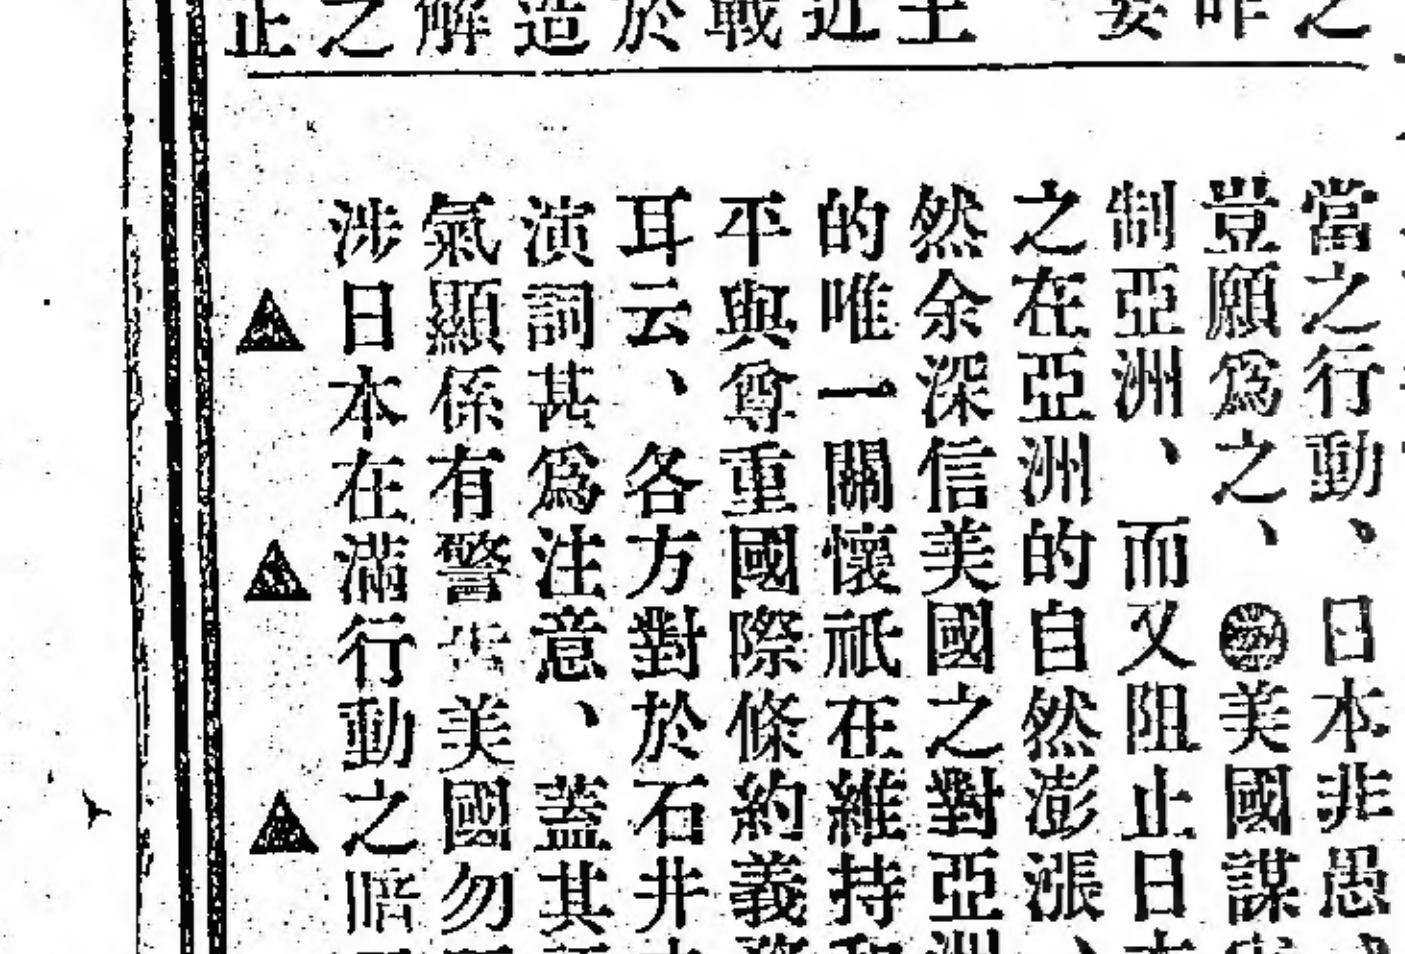 之
昨
妄
主
近
戰
於
造
解
之
止
當之行動、日本非愚
豈願爲之、美國謀
制亞洲、而又阻止日
之在亞洲的自然澎漲、
然余深信美國之對亞洲
的唯一關懷祇在維持和
平與尊重國際條約義務
耳云、各方對於石井
演詞甚爲注意、蓋其
氣顯係有警告美國勿
涉日本在滿行動之暗
▲▲▲